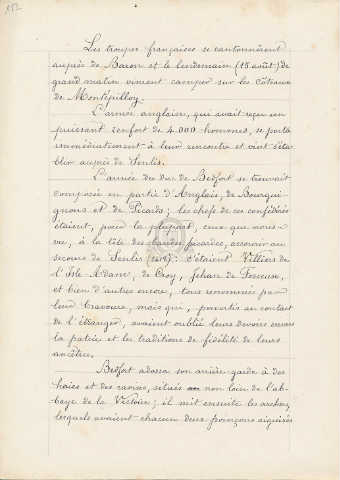 152
Les troupes françaises se cantonnèrent
auprès de Baron et le lendemain (15 août) de
grand matin vinrent camper sur les côteaux
de Montépilloy.
L'armée anglaise, qui avait reçu un
puissant renfort de 4.000 hommes, se porta
immédiatement à leur rencontre et vint s'éta
blir auprès de Senlis.
L'armée du duc de Bedfort se trouvait
composée en partie d'Anglais, de Bourgui-
gnons et de Picards; les chefs de ces confédérés
étaient, pour la plupart, ceux que nous
vu, à la tête des bandes picardes, accourir au
secours de Senlis : c'étaient Villiers de
l'Isle-Adam, de Croy, Jehan de Fosseuse,
et bien d'autres encore, tous renommés par
leur bravoure, mais qui, pervertis au contact
de l'étranger, avaient oublié leurs devoirs envers
la patrie et les traditions de fidélité de leurs
ancêtres.
Bedfort adossa son arrière-garde à des
haies et des ravins, situés non loin de l'ab-
baye de la Victoire; il mit ensuite les archers,
lesquels avaient chacun deux poinçons aiguisés